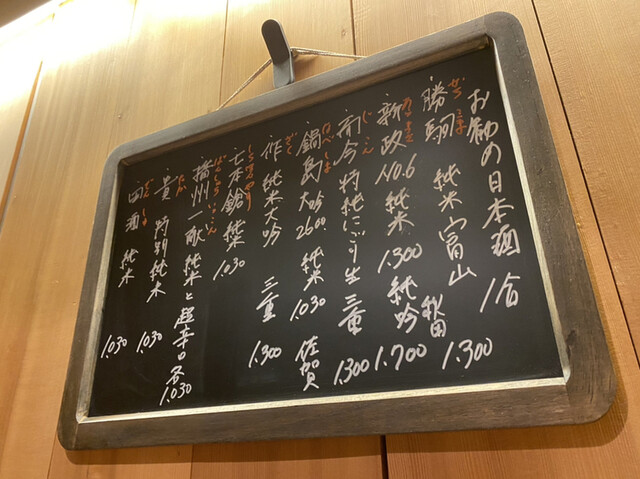 お勧めの日本酒 1合
勝駒 純米 富山 1.300
かち こま
新政 NO.6 純米 1.300 純吟 1.700 秋田
あらまさ
而今 特純にごり生 三重 1300
じ こん
鍋島 大吟 2600. 純米 1.030 佐賀
なべ しま
作 純米大吟 三重 1.300
ざく
七本鎗 純米 1.030
しちほんやり
播州一献 純米と超辛口 各1.030
ばんしゅういっこん
貴 特別純米 1.030
たか
田酒 純米 1.030
でん しゅ